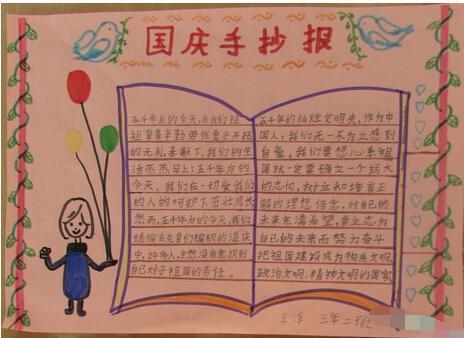 国庆手抄报
五千年后的今天,在我们祖
祖辈辈辛勤劳作爱手开拓
的无私奉献下,我们的生
活蒸蒸日上;五千年后的
今天,我们在一切爱我们
的人的呵护下茁壮成长
然而,五千年后的今天,我们
蜷缩在先辈们编织的温床
中,许多人,全然没有意识到
自己对于祖国的责任。
五千年的灿烂文明史,作为中
国人,我们无一不为之感到
自豪。我们要想心系祖
国就一定要确立一个远大
的志向,树立和培育正
确的理想信念,对自己的
未来充满希望,要立志为
自己的未来而努力奋斗
把祖国建设成为物质文明,
政治文明、精神文明的国家
三年二班